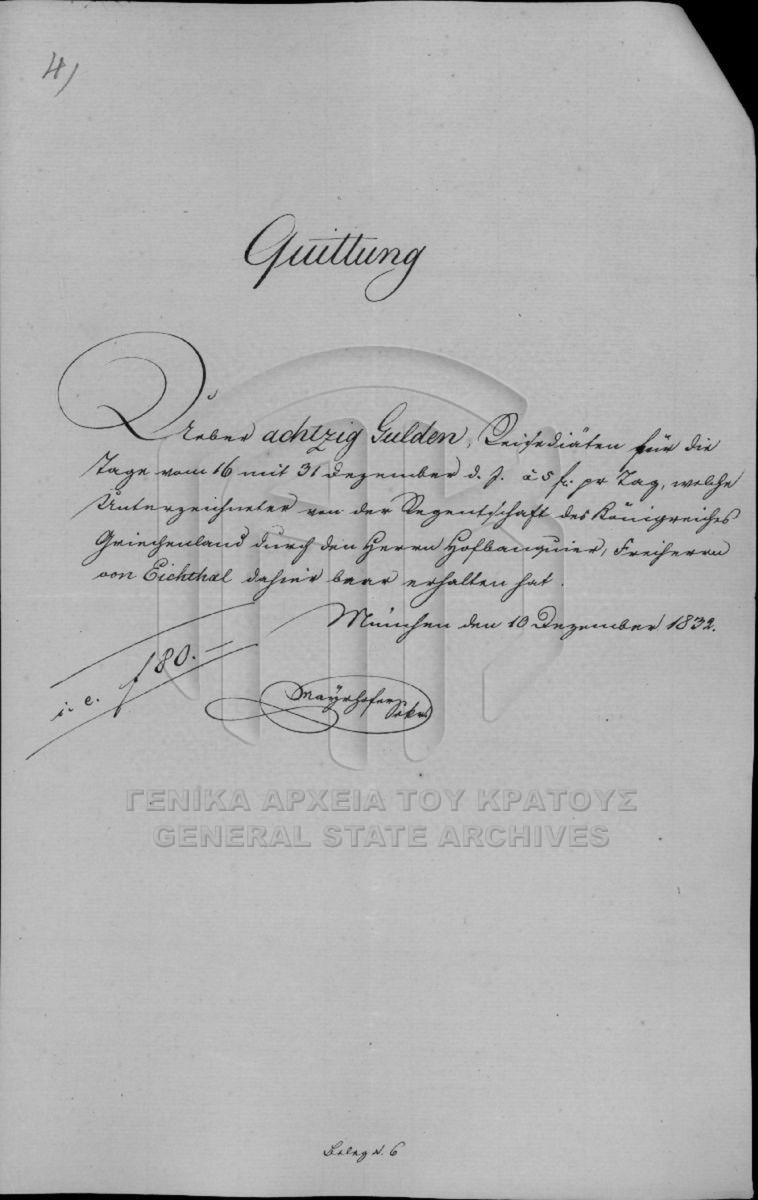 4)
Quittung
Ueber achtzig Gulden, Reisediäten für die
Tage vom 16 mit 31 Dezember d. J. à 5 f. pr Tag, welche
Unterzeichneter von der Regentschaft des Königreiches
Griechenland durch den Herrn Hofbanquier, Freiherrn
von Eichthal dahier baar erhalten hat.
München den 10 Dezember 1832.
i. e. f 80.—
Mayrhofer
Sekr.
ΓΕΝΙΚΑ ΑΡΧΕΙΑ ΤΟΥ ΚΡΑΤΟΥΣ
GENERAL STATE ARCHIVES
Beleg N. 6